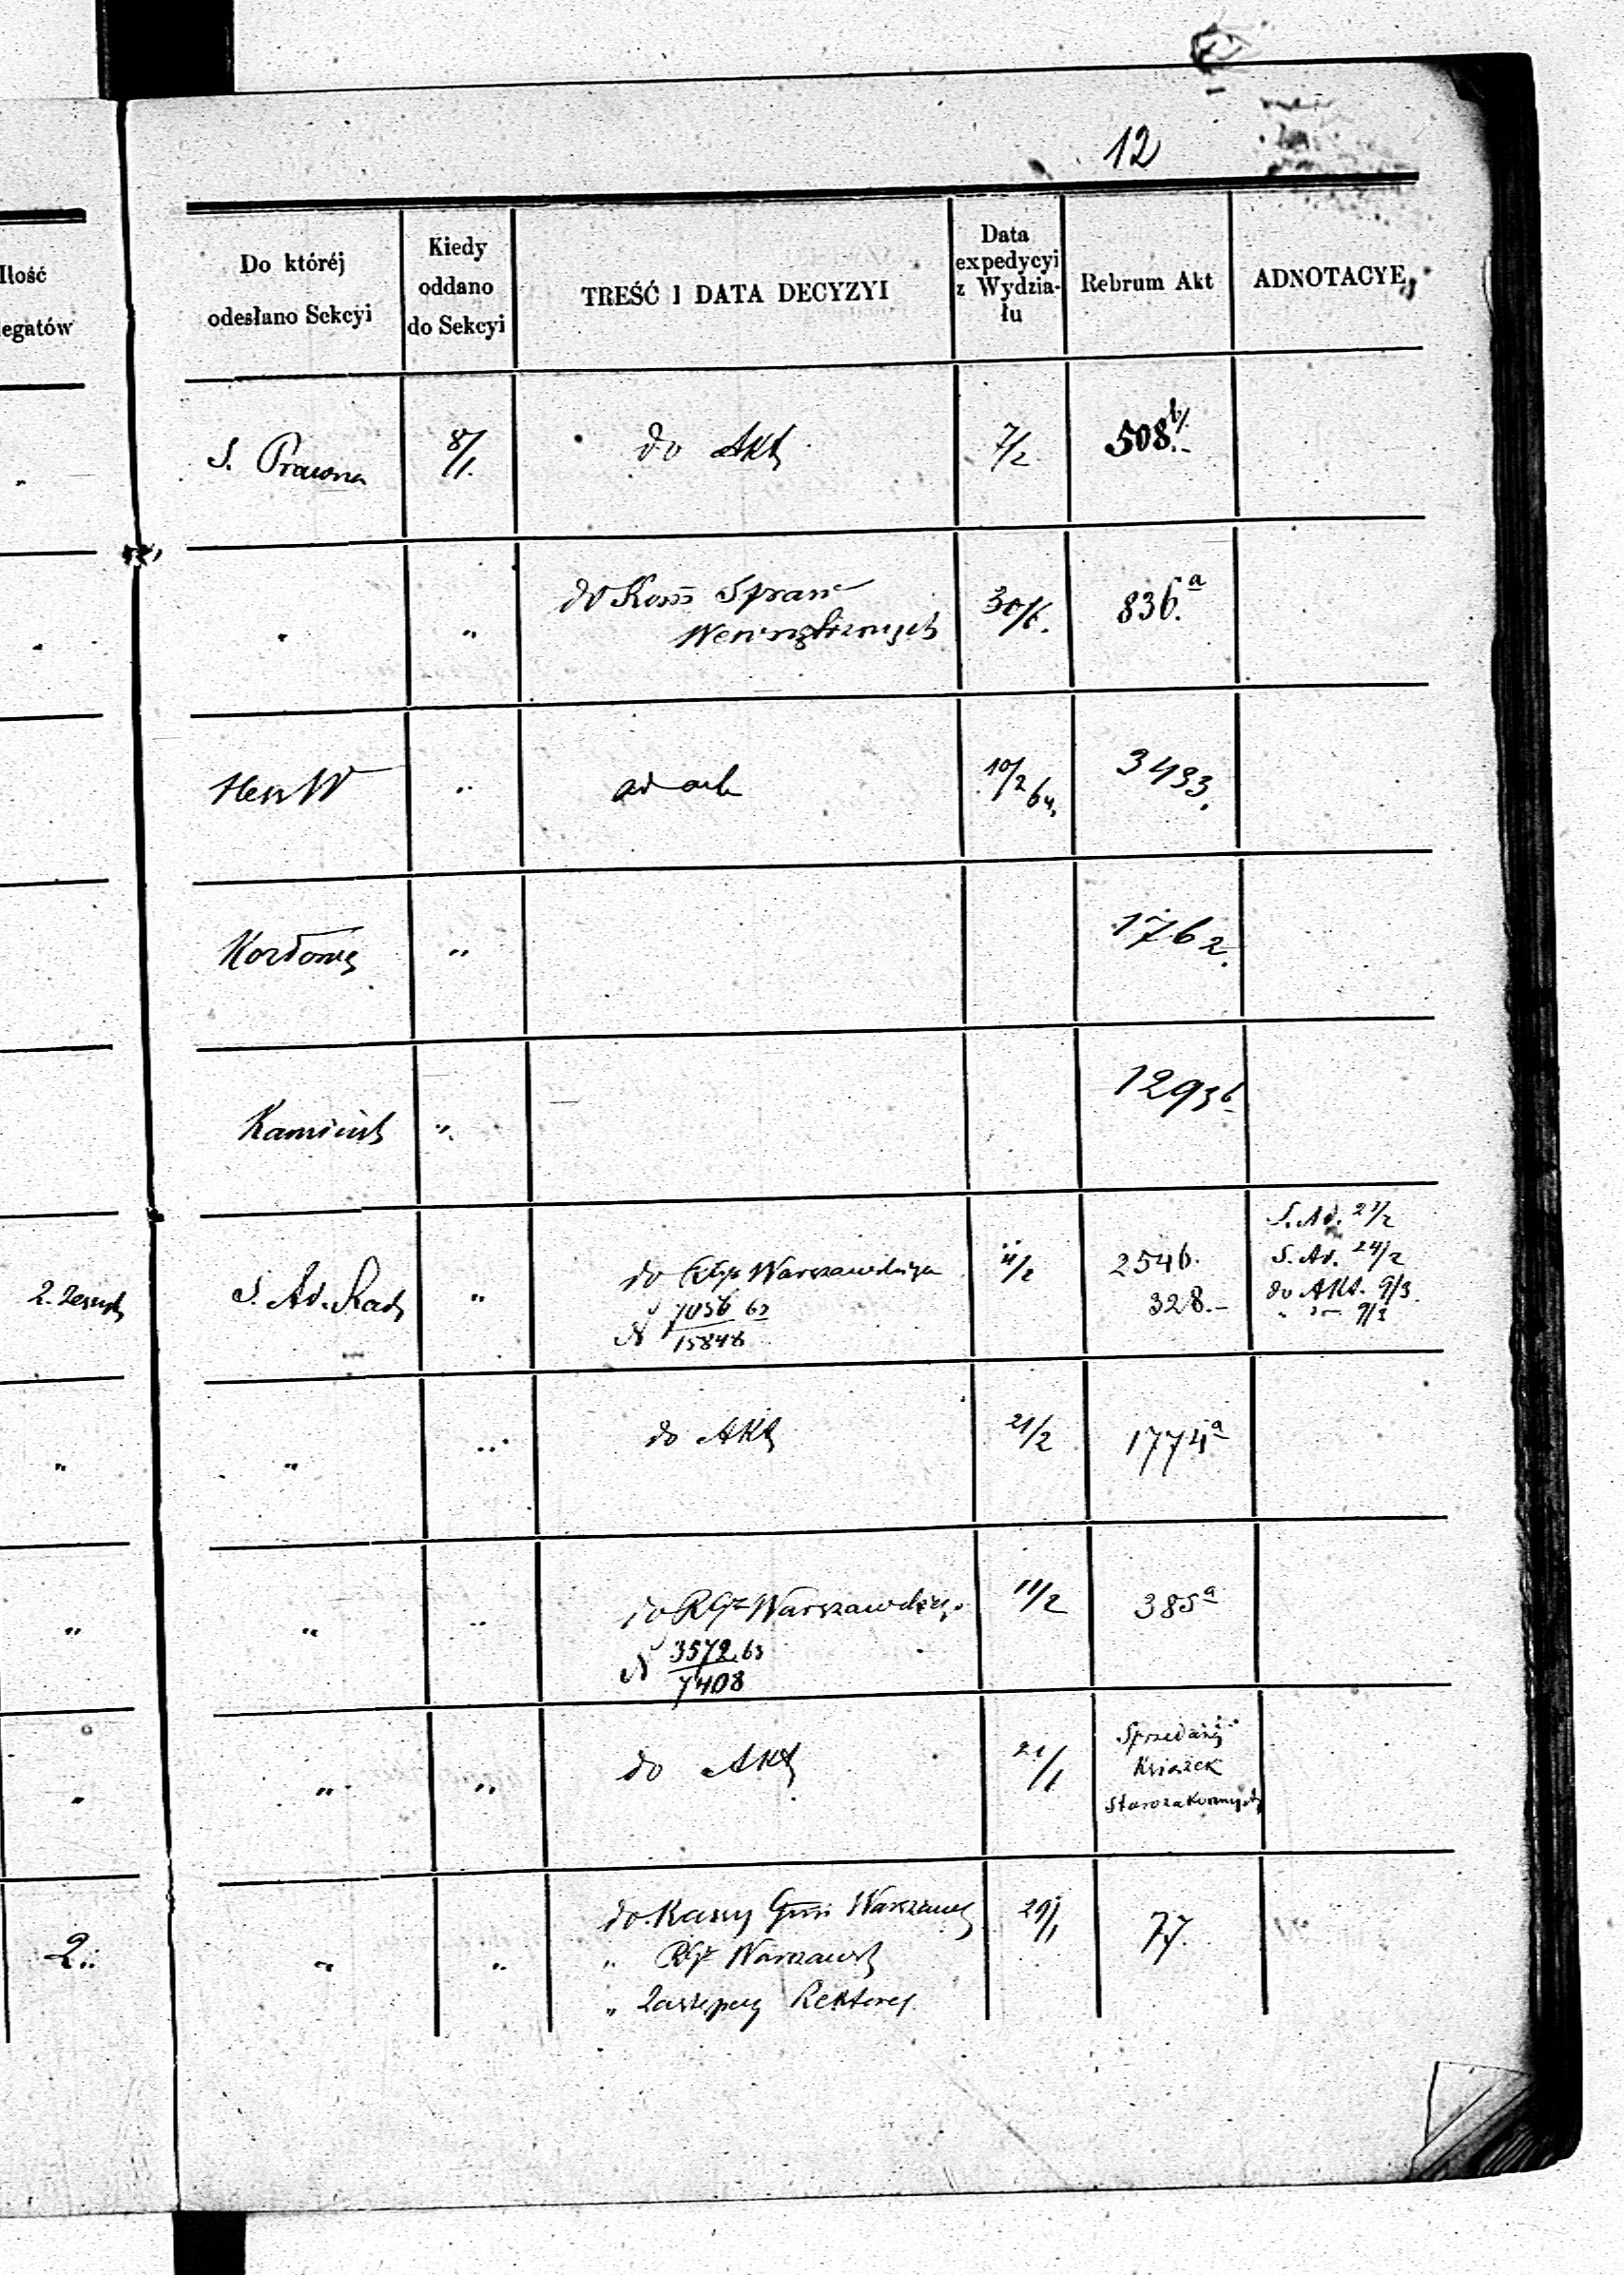 12
Ilość
legatów
Do któréj
odesłano Sekcyi
Kiedy
oddano
do Sekcyi
TREŚĆ I DATA DECYZYI
Data
expedycyi
z Wydzia-
łu
Rebrum Akt
ADNOTACYE
"
S. Prawna
8/1.
do Akt
7/2
508 b/.
"
"
"
do Kom Spraw
Wewnętrznych
30/6.
836. a
"
ad acta
10/2 64,
3433.
"
1762.
"
1293 b
2. Zeszyt
S. Ad. Rady
"
do Warszawskiego
N 7056 63
15848
11/2
2546.
328.-
S. Ad. 23/2
S. Ad. 24/2
do Akt. 9/3.
" 9/3
"
"
"
do Akt
21/2
1774 a
"
"
"
do RGu Warszawskiego
N 3572.63
7408
11/2
385 a
"
"
"
do Akt
21/1
Sprzedaży
Książek
Starozakonnych
2.
"
"
do Kassy Gub Warszaws
" RGu Warszawsk
" Zastępcy Rektora
29/1
77.